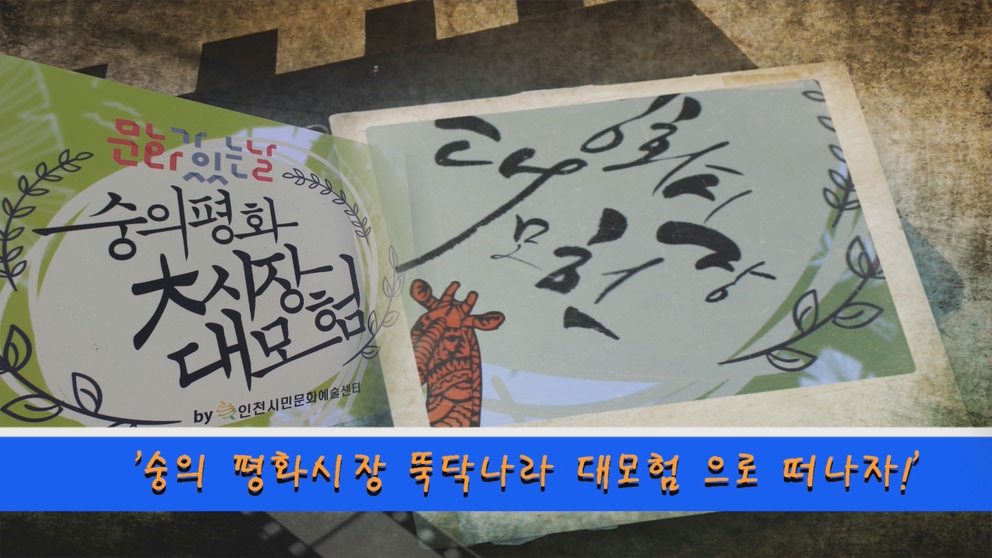 문화가 있는 날
숭의평화
大시장
대모험
by 인천시민문화예술센터
평화시장
대모험
'숭의 평화시장 뚝닥나라 대모험 으로 떠나자!'